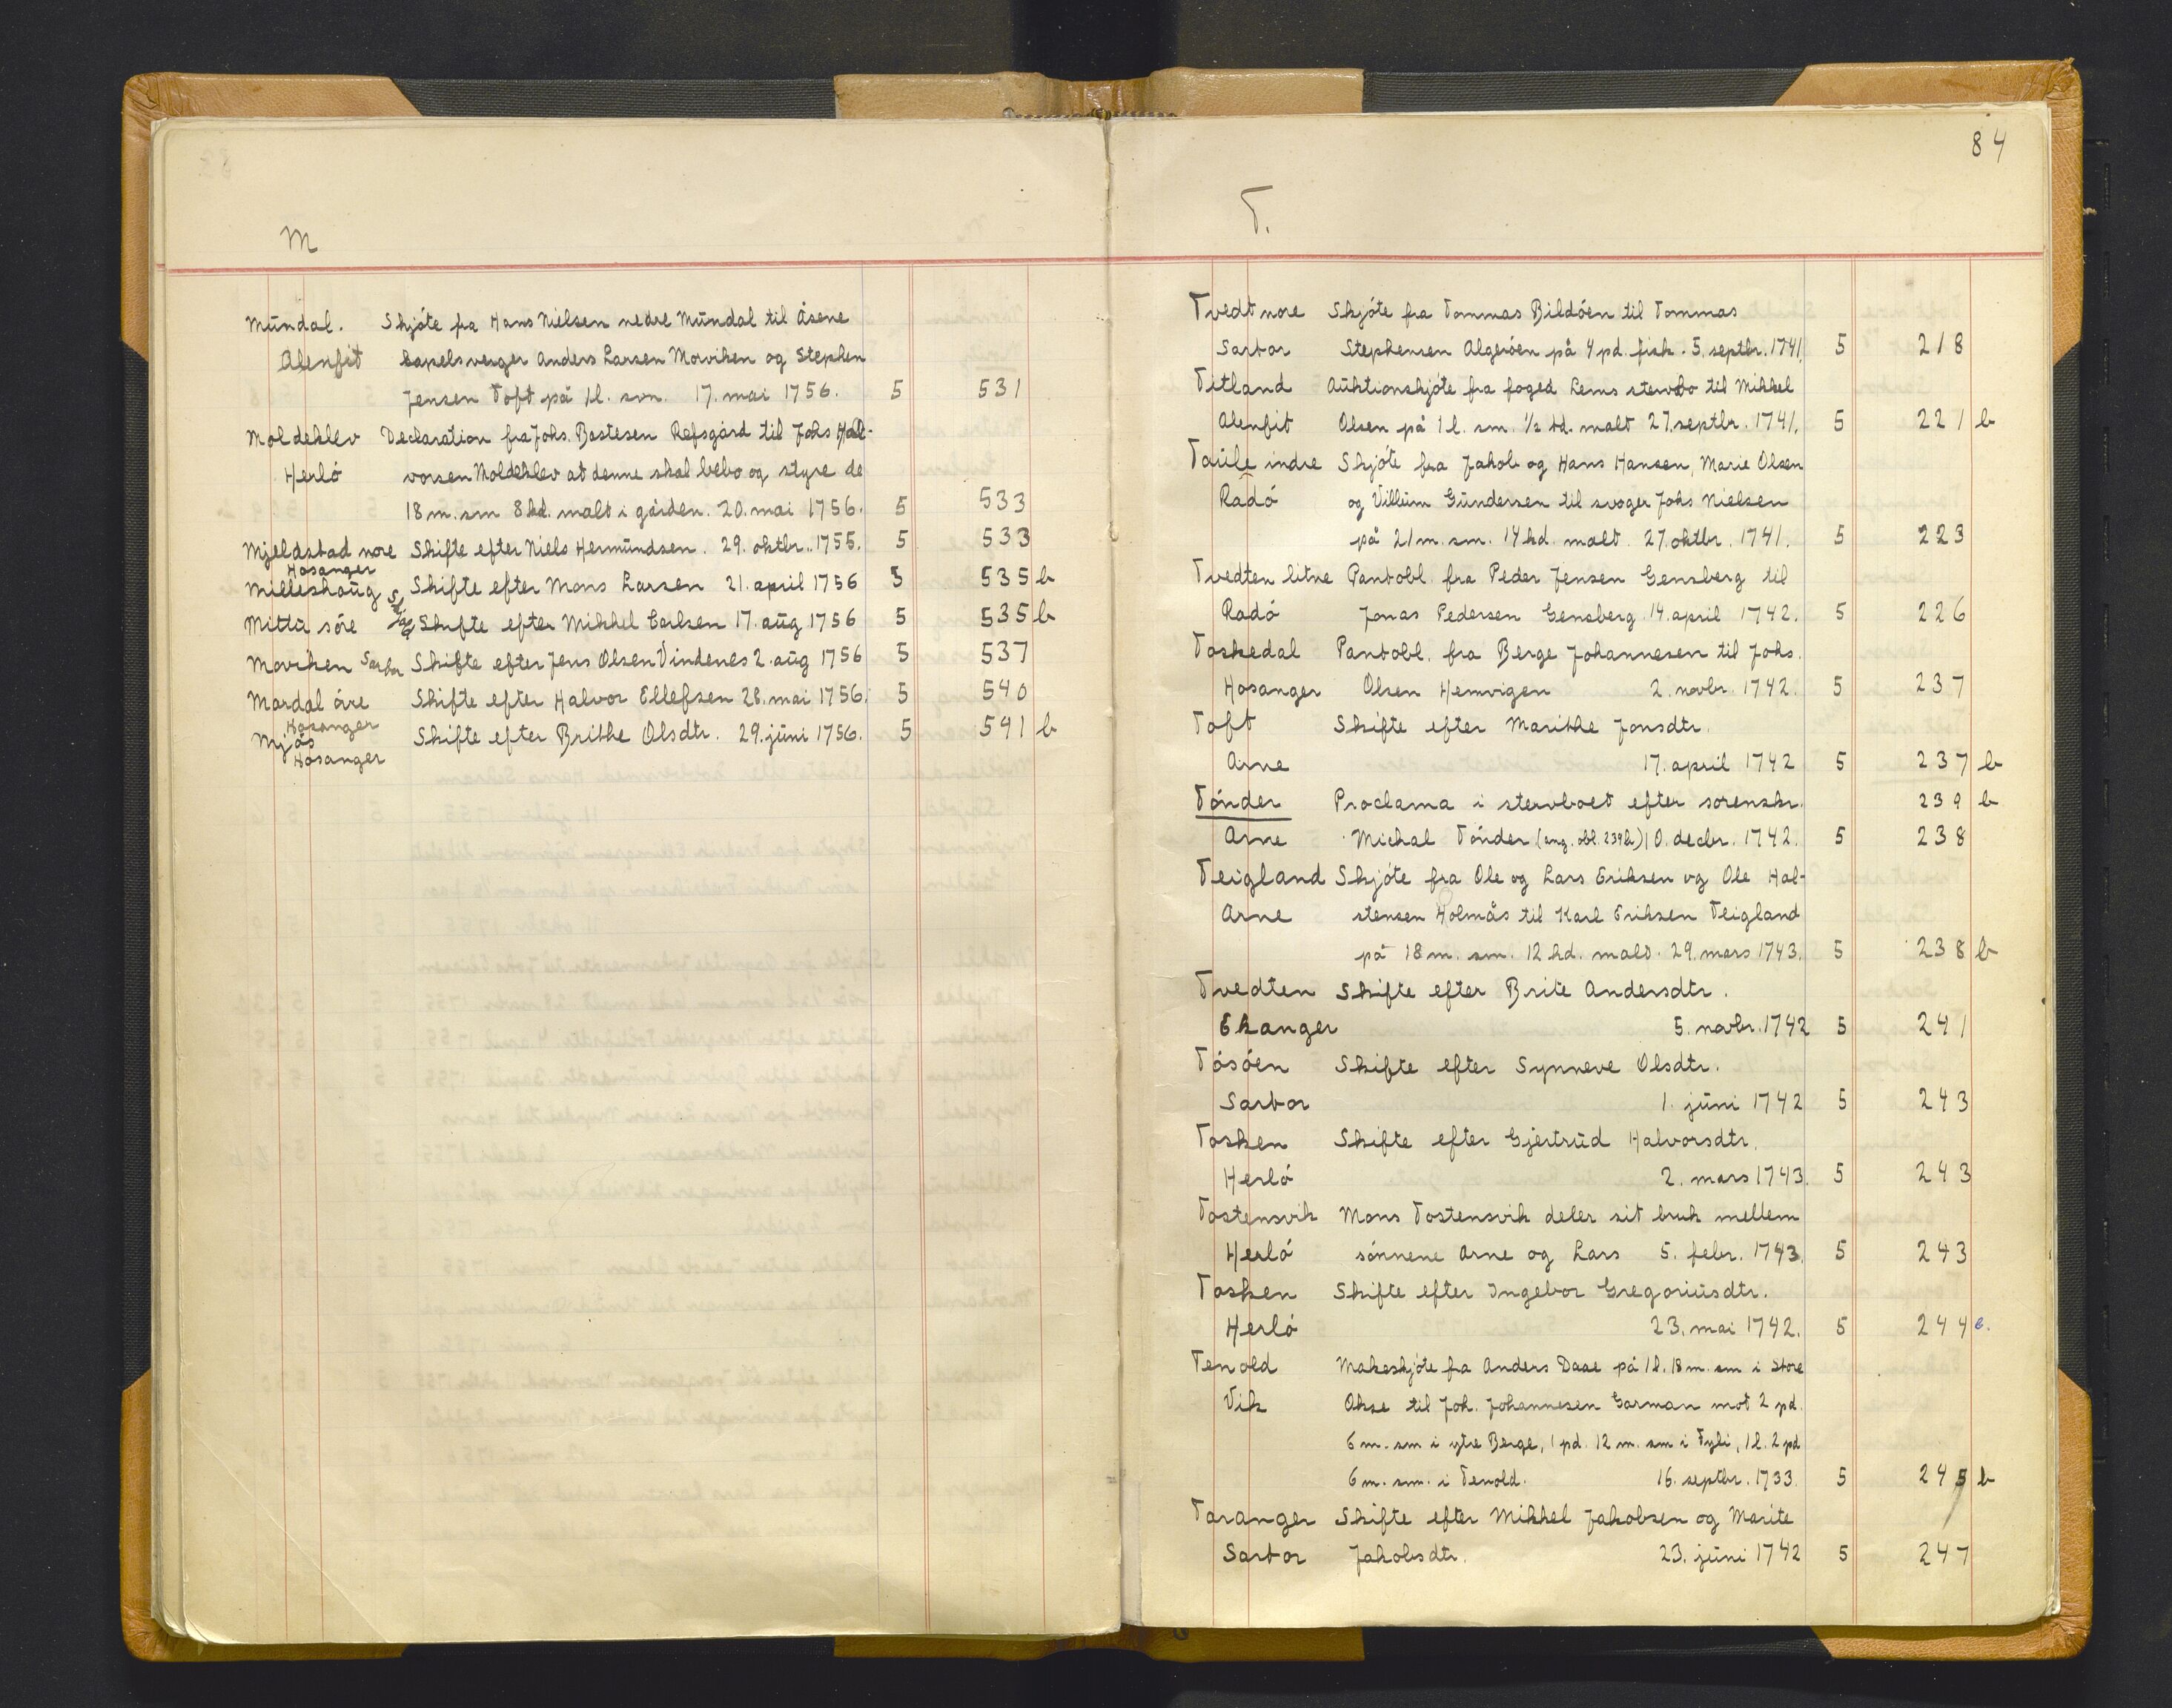 M
Mundal. Skjóte fra Hans Nielsen nedre Mundal til Åsene
Alenfit kapelsverger Anders Larsen Morviken og Stephen
Jensen Toft på 1l. svn. 17. mai 1756. 5 531
Moldeklev Declaration fra Johs. Bastesen Refsgård til Johs Hal-
Herló vorsen Moldeklev at denne skal bebo og styre de
18 m. sm 8 hd. malt i gården. 20. mai 1756. 5 533
Mjeldstad nore Skifte efter Niels Hermundsen. 29. oktbr. 1755. 5 533
Hosanger
Milleshaug Skifte efter Mons Larsen 21. april 1756 5 535 b
Mittu sóre Skifte efter Mikkel Carlsen 17. aug 1756 5 535 b
Morken Sartor Skifte efter Jens Olsen Vindenes 2. aug 1756 5 537
Mardal óvre Skifte efter Halvor Ellefsen 28. mai 1756. 5 540
Hosanger
Mjós Skifte efter Brithe Olsdtr. 29. juni 1756. 5 541 b
Hosanger
84
T.
Tvedt nore Skjóte fra Tommas Bildóen til Tommas
Sartor Stephensen Algeróen på 4 pd. fisk. 5. septbr. 1741. 5 218
Titland Auktionskjóte fra foged Lems stervbo til Mikkel
Alenfit Olsen på 1 l. sm. ½ td. malt 27. septbr. 1741. 5 221 b
Taule indre Skjóte fra Jakob og Hans Hansen, Marie Olsen
Radó og Villum Gundersen til svoger Johs Nielsen
på 21 m. sm. 14 hd. malt. 27. oktbr. 1741. 5 223
Tvedten litve Pantobl. fra Peder Jensen Gensberg til
Radó Jonas Pedersen Gensberg. 14. april 1742. 5 226
Toskedal Pantobl. fra Berge Johannesen til Johs.
Hosanger Olsen Hemvigen 2. novbr. 1742. 5 237
Toft Skifte efter Marithe Jonsdtr.
Arne 17. april 1742 5 237 b
Tónder Proclama i stervboet efter sorenskr. 239 b
Arne Michal Tónder (ang. obl. 239 b) 10. decbr. 1742. 5 238
Teigland Skjóte fra Ole og Lars Eriksen og Ole Hal-
Arne stensen Holmås til Karl Eriksen Teigland
på 18 m. sm. 12 hd. malt. 29. mars 1743. 5 238 b
Tvedten Skifte efter Brite Andersdtr.
Ekanger 5. novbr. 1742 5 241
Tósóen Skifte efter Synneve Olsdtr.
Sartor 1. juni 1742 5 243
Tosken Skifte efter Gjertrud Halvorsdtr.
Herló 2. mars 1743. 5 243
Tostensvik Mons Tostensvik deler sit bruk mellem
Herló sónnene Arne og Lars 5. febr. 1743. 5 243
Tosken Skifte efter Ingebor Gregoriusdtr.
Herló 23. mai 1742. 5 244 b.
Tenold Makeskjóte fra Anders Daae på 1 l. 18 m. sm i Store
Vik Okse til Joh. Johannesen Garman mot 2 pd.
6 m. sm i ytre Berge, 1 pd. 12 m. sm i Tyli, 1 l. 2 pd
6 m. sm. i Tenold. 16. septbr. 1733. 5 245 b
Taranger Skifte efter Mikkel Jakobsen og Marite
Sartor Jakobsdtr. 23. juni 1742 5 247